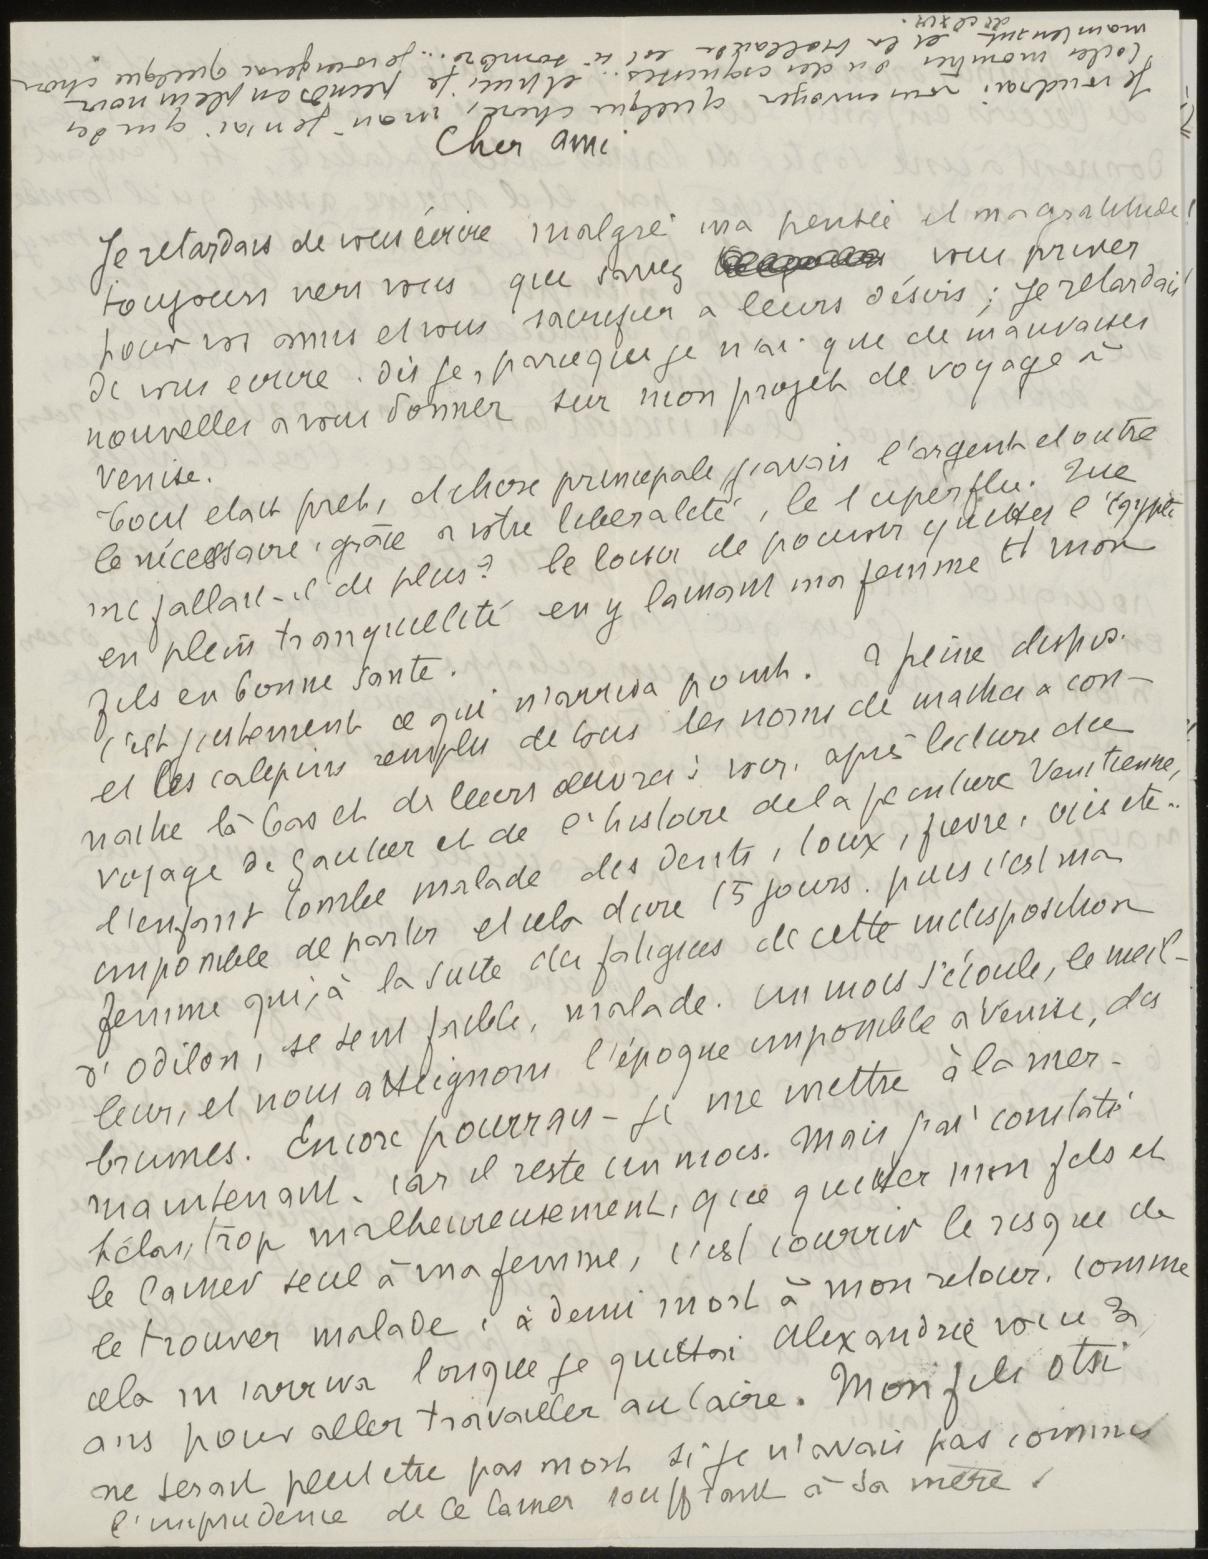 Je voudrai vous envoyer quelque chose, mon je n'ai que des
toiles montées ou des esquisses... et puis, je peins en plein noir
maintenant et la hollande est si sombre... je songerai quelque chose
de clair.
Cher ami
Je retardais de vous écrire malgré ma pensée et ma gratitude
toujours vers vous que savez vous priver
pour vos amis et vous sacrifier a leurs désirs ; je retardais
de vous ecrire. dis je, parceque je n'ai que de mauvaises
nouvelles a vous donner sur mon projet de voyage à
Venise.
Tout etait pret, et chose principale, j'avais l'argent et outre
le nécessaire, grâce a votre liberalité, le superflu. Que
me fallait-il de plus? le loisir de pouvoir quitter l'égypte
en plein tranquillité en y laissant ma femme et mon
fils en bonne santé.
C'est justement ce qui n'arriva point. a peine dispos.
et les calepins remplis de tous les noms de maitres a con-
naitre là bas et de leurs oeuvres à voir, après lecture du
voyage de Gautier et de l'histoire de la peinture Venitienne,
l'enfant tombe malade des dents, toux, fievre, cris etc..
impossible de partir et cela dure 15 jours. puis c'est ma
femme qui, à la suite des fatigues de cette indisposition
d'Odilon, se sent faible, malade. un mois s'écoule, le meil-
leur, et nous atteignons l'époque impossible a Venise, des
brumes. Encore pourrais-je me mettre à la mer-
maintenant. car il reste un mois. Mais j'ai constaté
hélas, trop malheureusement, que quitter mon fils et
le laisser seul à ma femme, c'est courrir le risque de
le trouver malade, à demi mort à mon retour. comme
cela m'arriva lorsque je quittai Alexandrie voici 3
ans pour aller travailler au Caire. Mon fils Otsi
ne serait peut etre pas mort si je n'avais pas commis
l'imprudence de le laisser souffrant à sa mère.